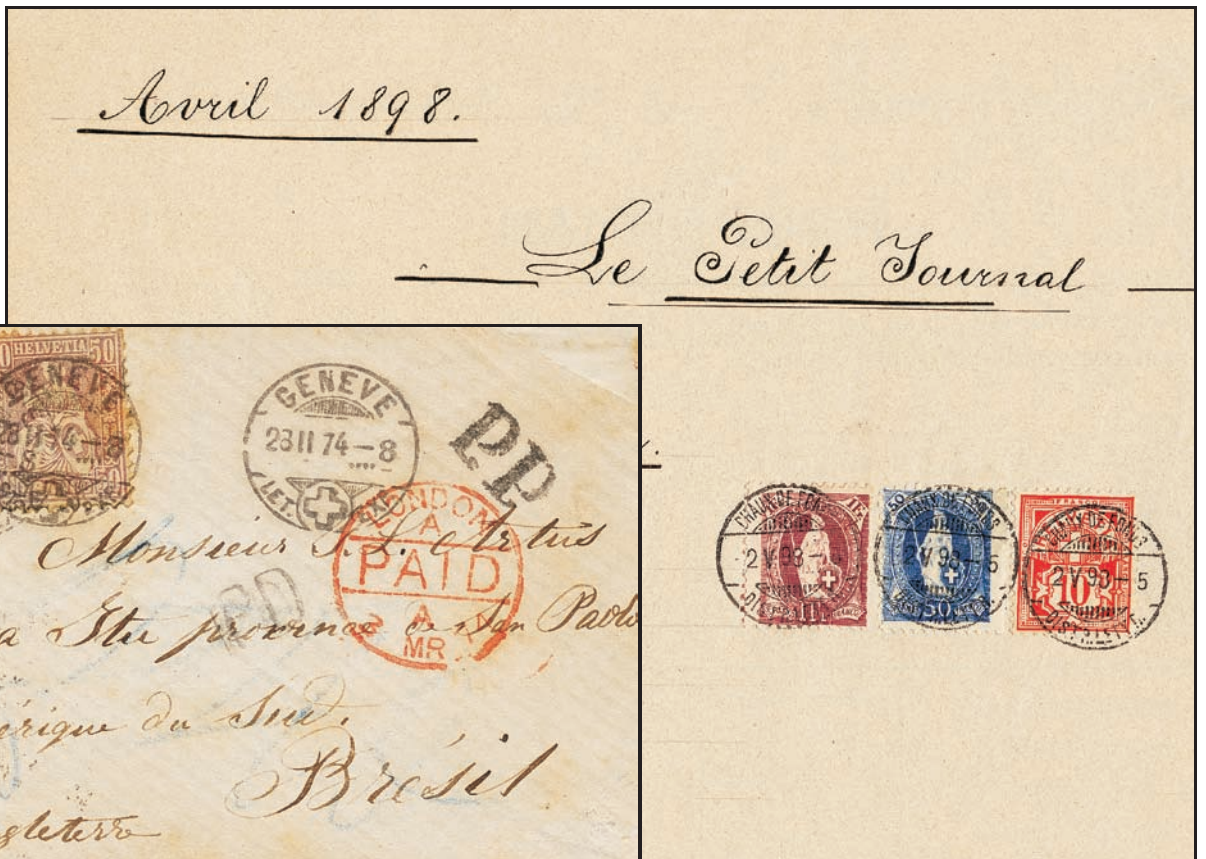 Avril 1898.
Le Petit Journal
HELVETIA 50
GENEVE
28 II 74 – 8
GENEVE
28 II 74 – 8
LET.
P.P.
LONDON
A
PAID
MR
PD
Monsieur J. L. Artus
a Itu province de San Paolo
érique du Sud.
Brésil
gleterre
CHAUX-DE-FONDS
2 V 98 –
1 FR.
CHAUX-DE-FONDS
2 V 98 – 5
50
CHAUX-DE-FONDS
2 V 98 – 5
FRANCO
10